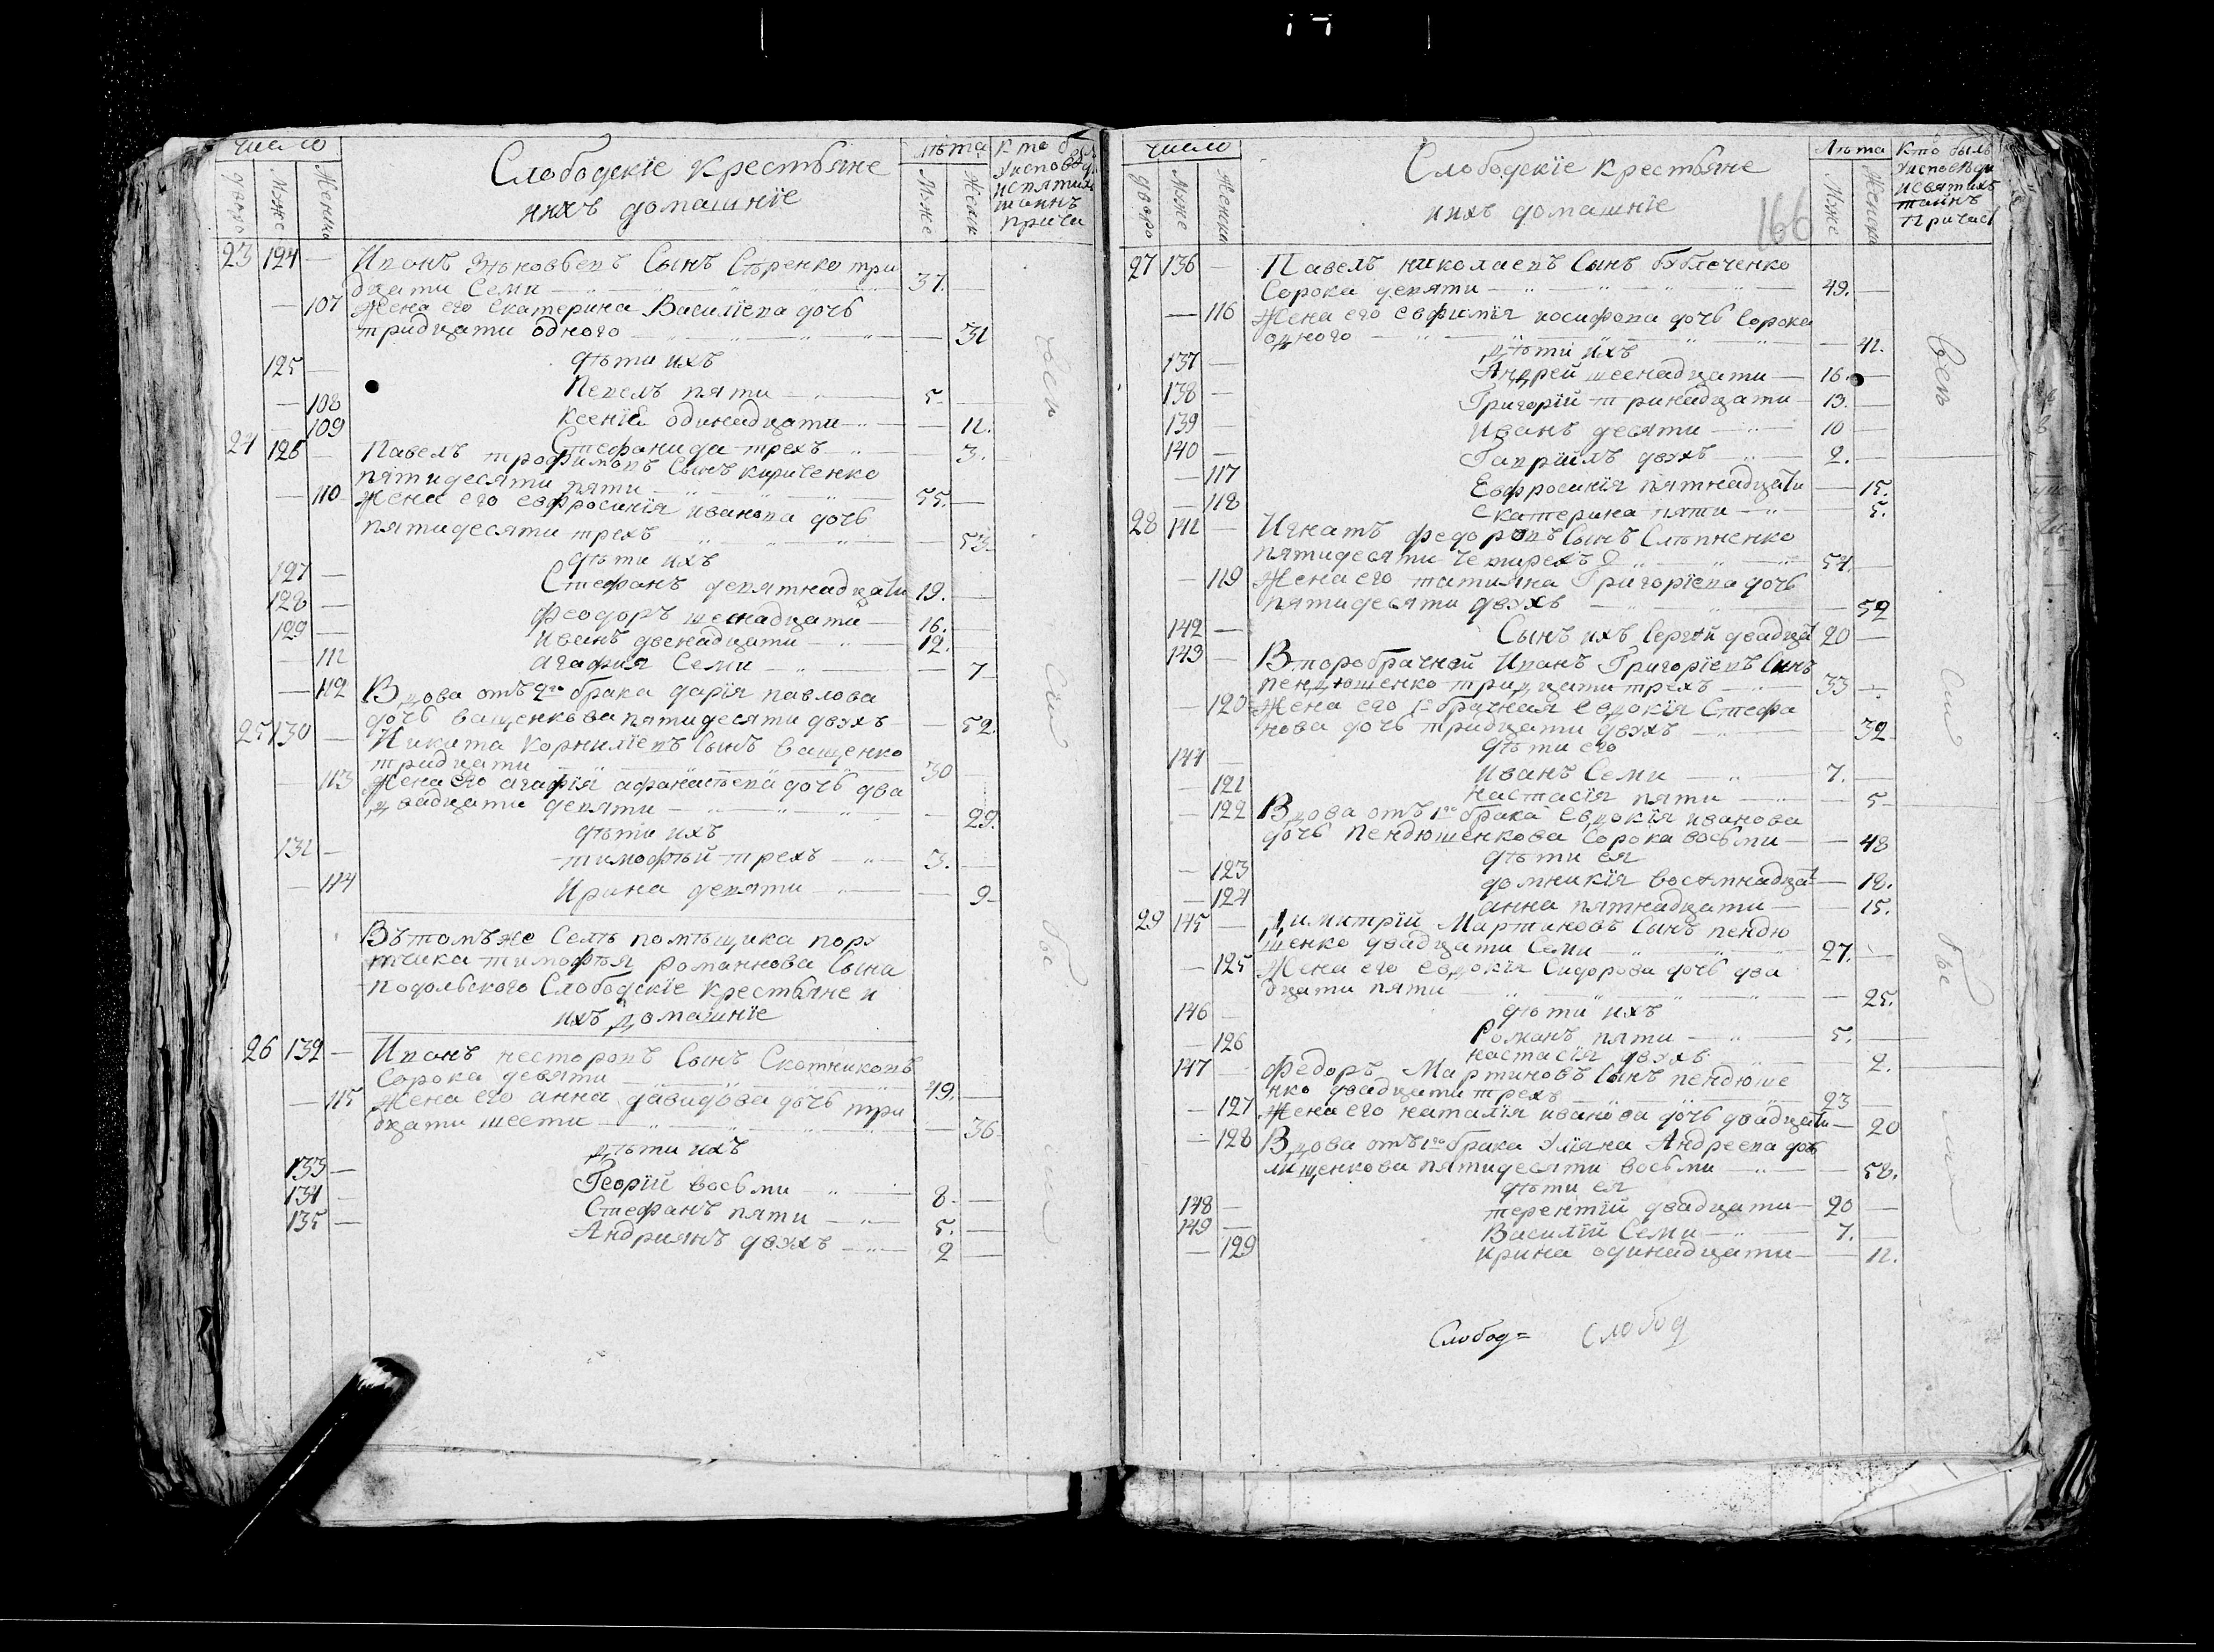 число
дворо
Мȣже
Женски
Слободскїе крестьяне
ихъ домашнїе
лѣта
Мȣже
Женск
Кто был
ȣисповед
исвятих
таинъ
прича
23 124 — Иванъ Зѣновьевъ Сынъ Сѣренко три
дцати Семи 37. —
— 107 Жена его Екатерина Василїева дочь
тридцати одного — 31
125 — дѣти ихъ
Павелъ пяти 5. —
— 108 ксенїя одинадцати — 11.
— 109 Стефанида трехъ 3.
24 126 — Павелъ трофимовъ Сынъ кириченко
пятидесяти пяти 55. —
— 110 Жена его евфросинїя иванова дочь
пятидесяти трехъ — 53.
дѣти ихъ
127 — Стефанъ девятнадцати 19. —
128 — феодоръ шеснадцати 16. —
129 — иванъ двенадцати 12.
— 111 агафия Семи — 7
— 112 Вдова отъ 2го брака дарїя павлова
дочь ващенкова пятидесяти двухъ — 52.
25 130 — Никита корнилїевъ Сынъ ващенко
тридцати 30
— 113 Жена его агафїя афанасѣева дочь два
двадцати девяти — 29.
дѣти ихъ
131 — тимофѣй трехъ 3. —
— 114 Ирина девяти — 9
Въ томъ же Селѣ помѣщика порȣ
тчика тимофѣя романнова Сына
подольского Слободскїе крестьяне и
ихъ домашнїе
26 132 — Иванъ несторовъ Сынъ Скотниковъ
Сорока девяти 49. —
— 115 Жена его анна давидова дочь три
дцати шести — 36
дѣти ихъ
133 — Георїй восьми 8. —
134 — Стефанъ пяти 5. —
135 — Андриянъ двȣхъ 2 —
Сїи бы
число
дворо
Мȣже
Женски
Слободскїе крестьяне
ихъ домашнїе
166
Лѣта
Мȣже
Женски
Кто былъ
ȣисповѣди
исвятихъ
таинъ
Причаст
27 136 — Павелъ николаевъ Сынъ бȣблеченко
Сорока девяти 49. —
— 116 Жена его евфимїя иосифова дочь Сорока
одного — 41.
дѣти ихъ
137 — Андрей шеснадцати 16. —
138 — Григорїй тринадцати 13. —
139 иванъ десяти 10 —
140 — Гаврїилъ двȣхъ 2. —
— 117 Евфросинїя пятнадцати — 15.
— 118 Екатерина пяти — 5.
28 141 — Игнатъ федоровъ Сынъ Слѣпненко
пятидесяти четирехъ 54. —
— 119 Жена его татияна Григорїева дочь
пятидесяти двȣхъ — 52
142 — Сынъ ихъ Сергѣй двадца 20 —
143 — Второбрачной Иванъ Григорїевъ Сынъ
пендюшенко тридцати трехъ 33 —
— 120 Жена его 1 брачная евдокїя Стефа
нова дочь тридцати двȣхъ — 32
дѣти его
144 — иванъ Семи 7. —
— 121 настасїя пяти — 5
— 122 Вдова отъ 1го брака Евдокїя иванова
дочь пендюшенкова Сорока восьми — 48
дѣти ея
— 123 домникїя восѣмнадцат — 18.
— 124 анна пятнадцати — 15.
29 145 — Димитрїй Мартиновъ Сынъ пендю
шенко двадцати Семи 27. —
— 125 Жена его евдокїя Сидорова дочь два
дцати пяти — 25.
дѣти ихъ
146 — Романъ пяти 5. —
— 126 настасїя двȣхъ 2.
147 — Федоръ Мартиновъ Сынъ пендюше
нко двадцати трехъ 23 —
— 127 Жена его наталїя иванова дочь двадцати — 20
— 128 Вдова отъ 1го брака ȣлїяна Андреева дочь
лищенкова пятидесяти восьми — 58.
дѣти ея
148 — терентїй двадцати 20 —
149 — Василїй Семи 7. —
— 129 ирина одинадцати — 11.
Сїи бы
Слобод= Слобод